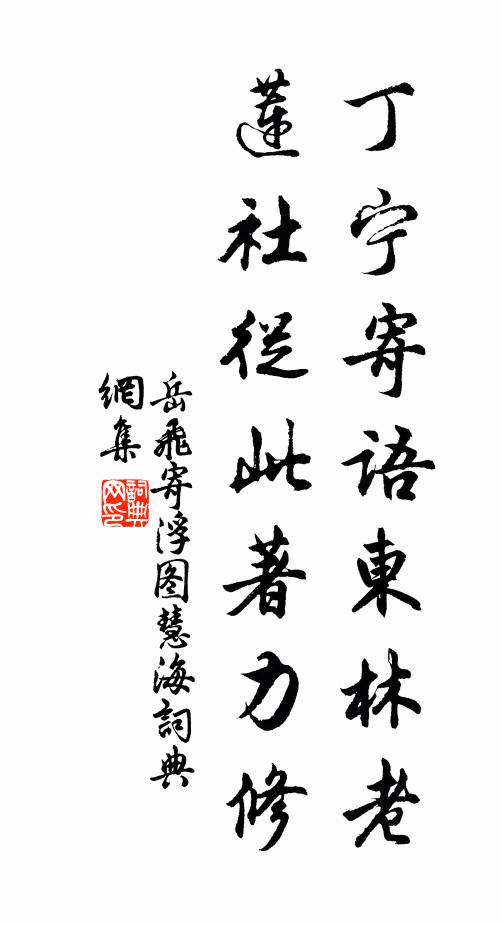 丁宁寄語東林老
蓮社從此著力修
岳飛寄浮图慧海詞典
網集
詞典网印